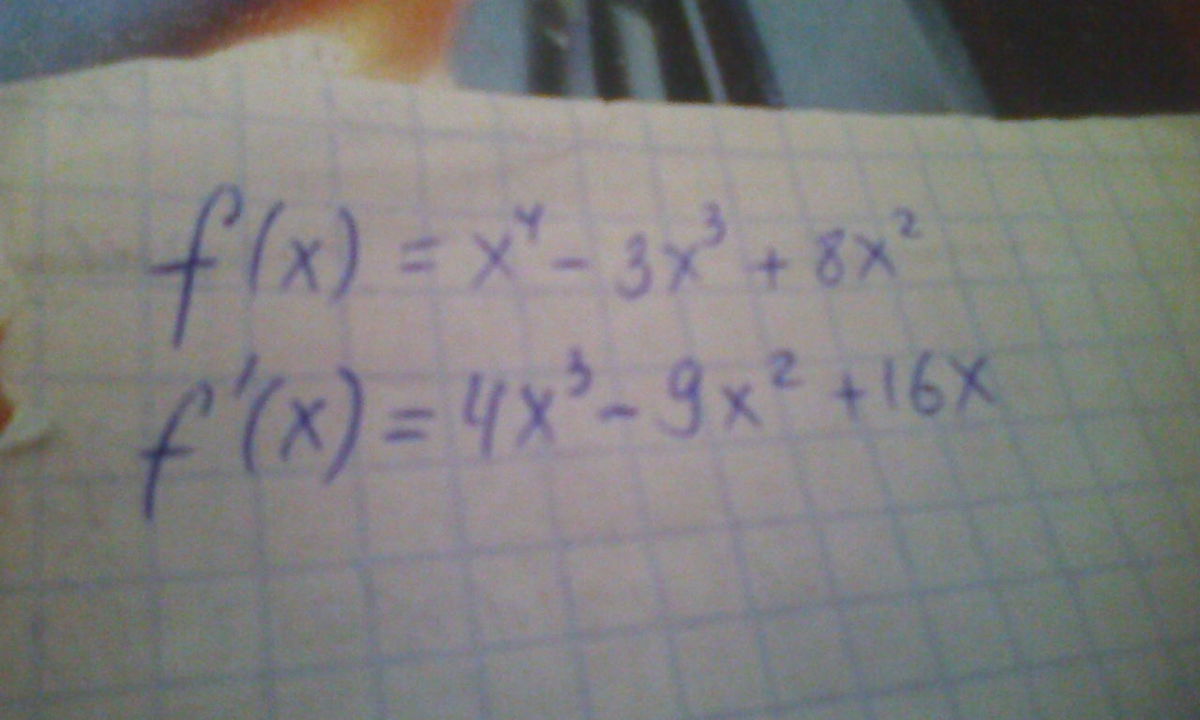 f(x) = x⁴ - 3x³ + 8x²
f'(x) = 4x³ - 9x² + 16x